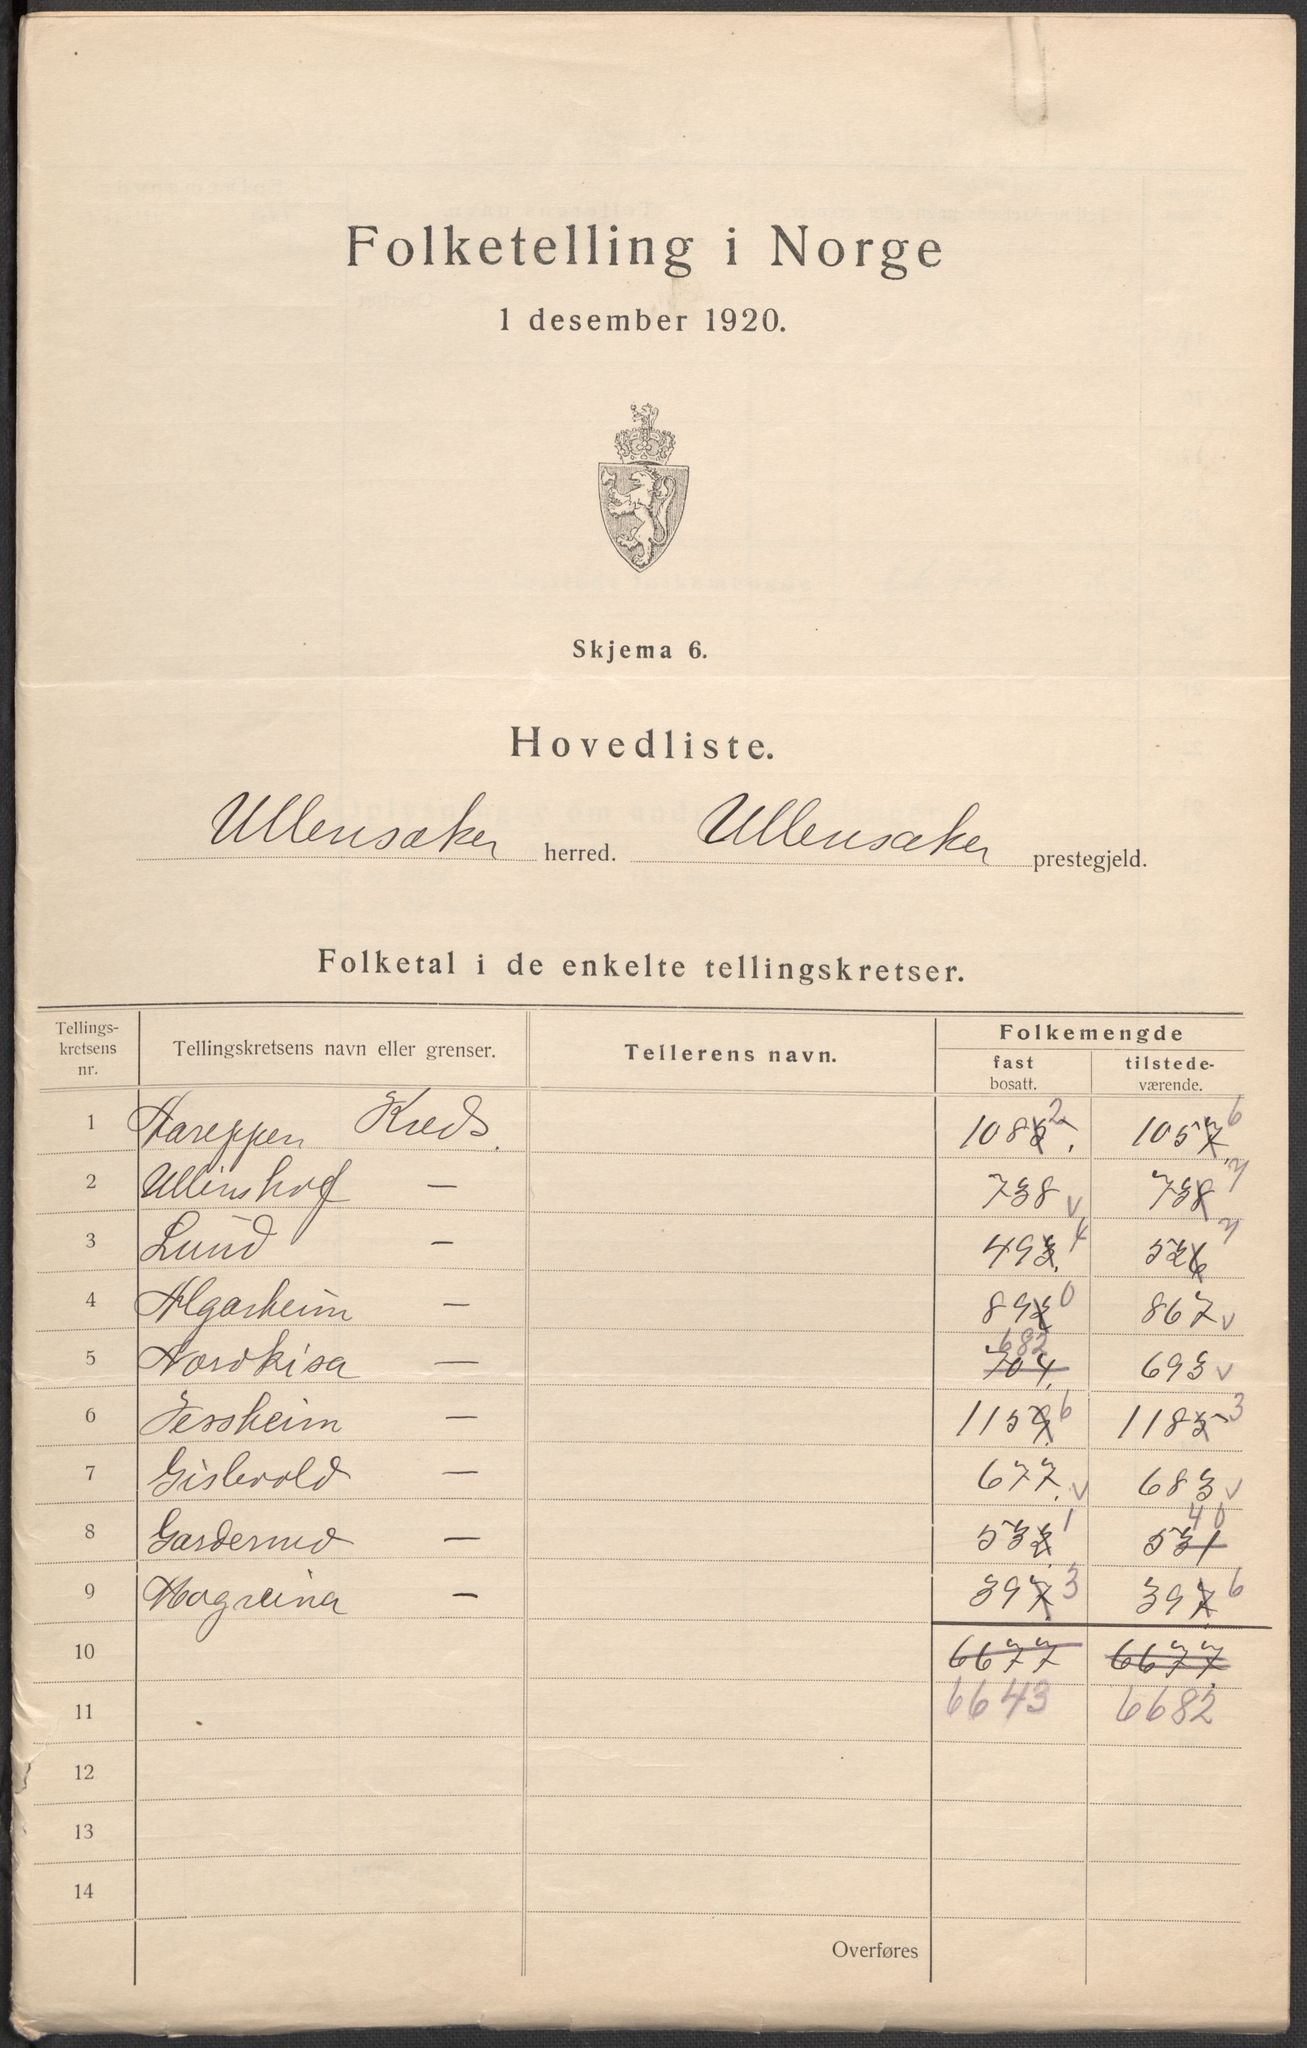 Folketelling i Norge
1 desember 1920.
Skjema 6.
Hovedliste.
Ullensaker herred. Ullensaker prestegjeld.
Folketal i de enkelte tellingskretser.
Tellings-kretsens nr. Tellingskretsens navn eller grenser. Tellerens navn. Folkemengde
fast bosatt. tilstede-værende.
1 Kreds 1083 2 1057 6
2 Ullinshof — 738 v 738 7
3 Lund — 493 4 526 7
4 Algarheim — 892 0 867 v
5 Nordkisa — 704 682 693 v
6 Jessheim — 1159 6 1185 3
7 Gislevold — 677 v 683 v
8 — 532 1 531 40
9 Mogreina — 397 3 397 6
10 6677 6677
11 6643 6682
12
13
14
Overføres